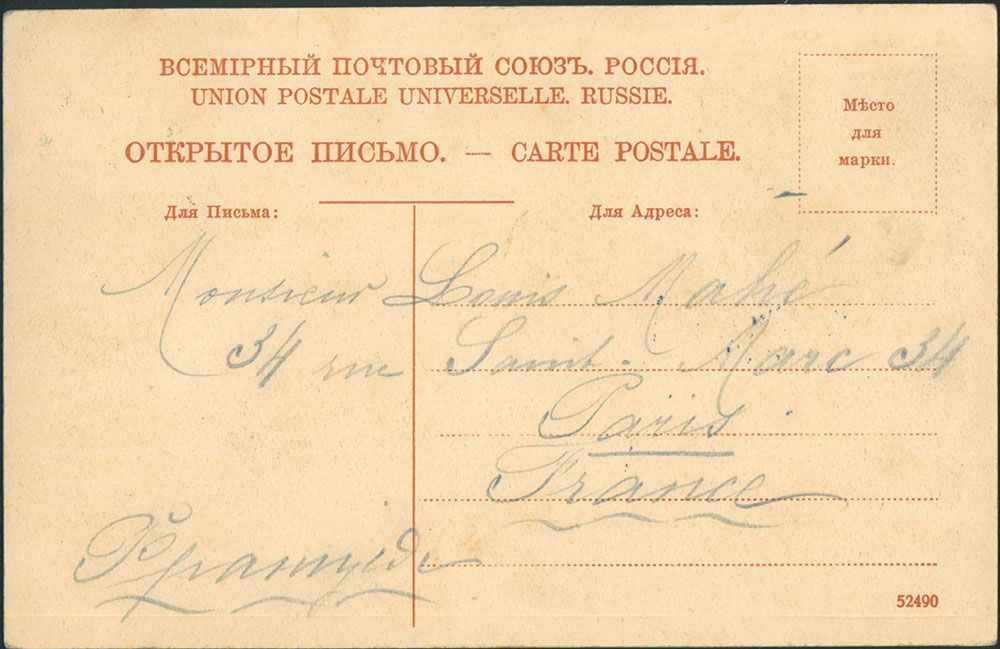 ВСЕМІРНЫЙ ПОЧТОВЫЙ СОЮЗЪ. РОССІЯ.
UNION POSTALE UNIVERSELLE. RUSSIE.
ОТКРЫТОЕ ПИСЬМО. — CARTE POSTALE.
Мѣсто
для
марки.
Для Письма:
Для Адреса:
Monsieur Louis Mahé
34 rue Saint-Marc 34
Paris
France
52490